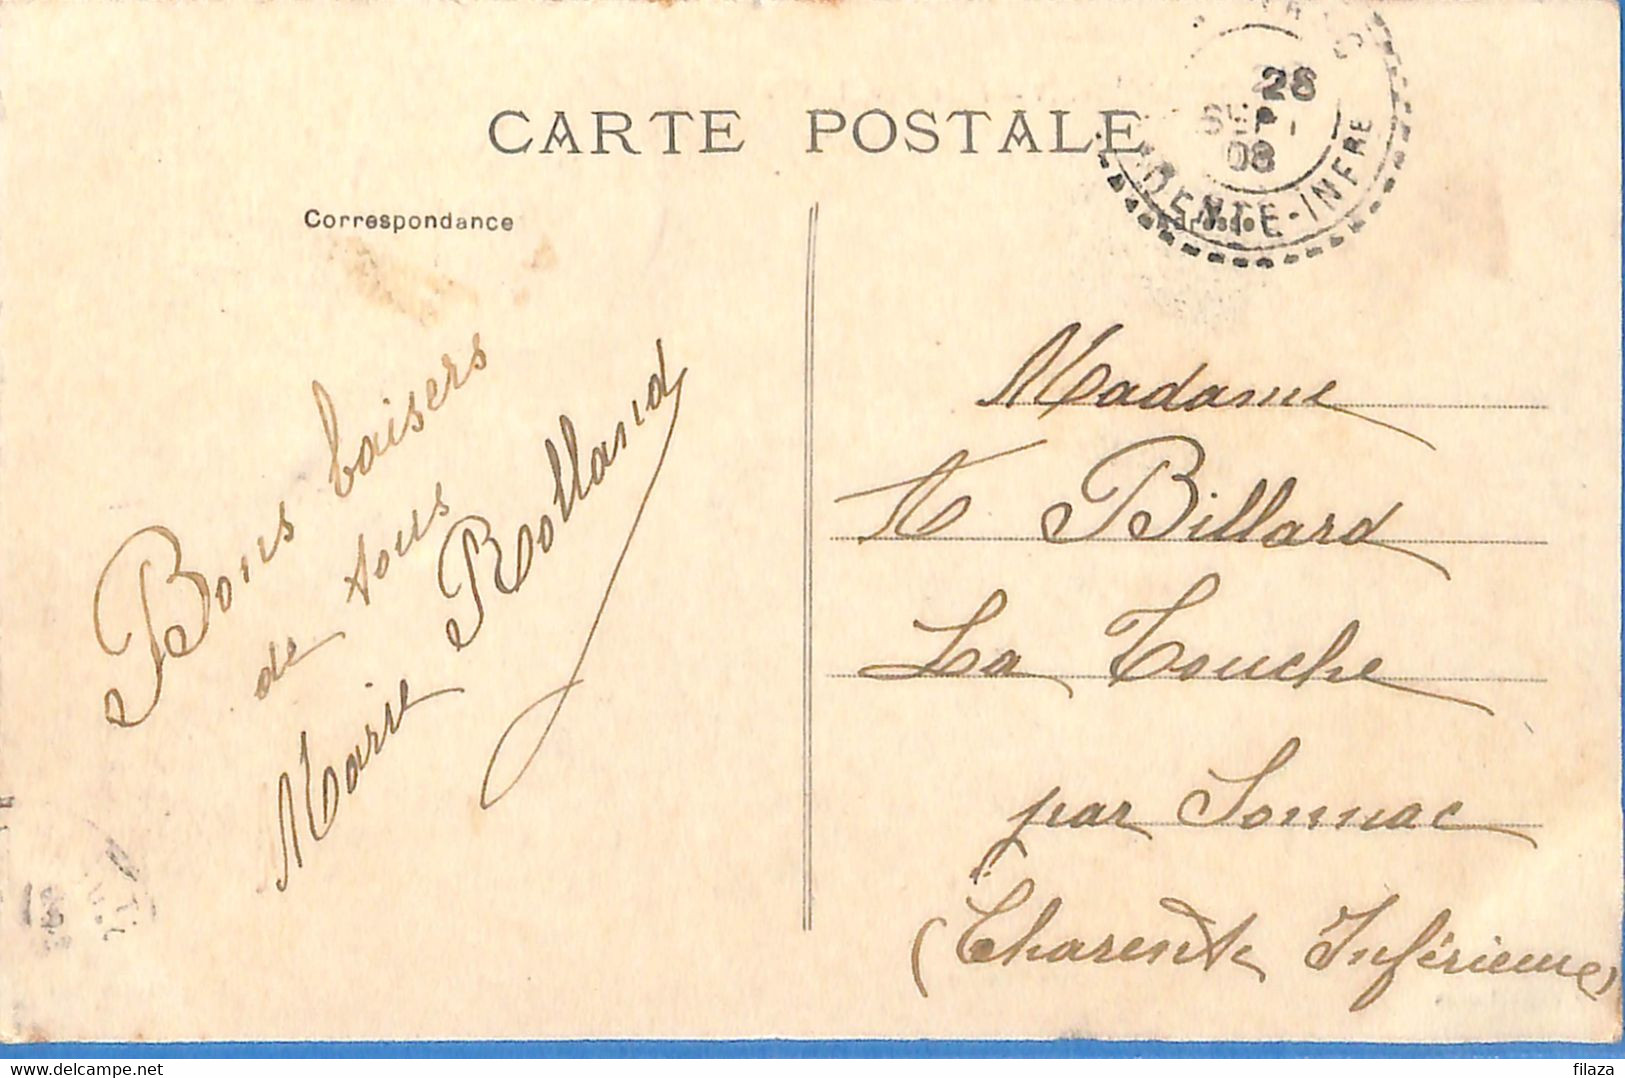 CARTE POSTALE
Correspondance
28
SEP
08
CHARENTE-INFRE
Bons baisers
de tous
Marie Rolland
Madame
Billard
La Touche
par Sonnac
(Charente Inférieure)
delcampe.net
filaza